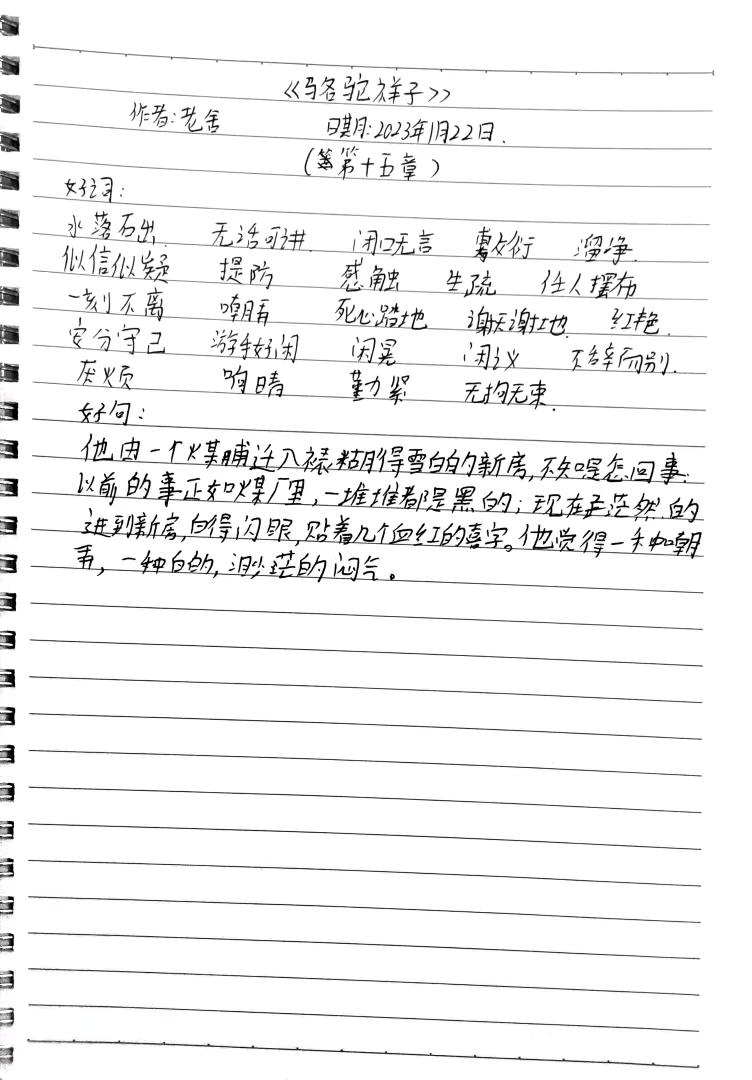 《骆驼祥子》
作者:老舍 日期:2023年1月22日.
(第十五章)
好词:
水落石出 无话可讲 闭口无言 敷衍 溜净
似信似疑 提防 感触 生疏 任人摆布
一刻不离 嘲看 死心踏地 谢天谢地 红艳
安分守己 游手好闲 闲晃 闲议 不辞而别.
灰烦 响晴 勤紧 无拘无束.
好句:
他由一个煤脯迁入裱糊得雪白的新房,不知是怎回事:
以前的事正如煤厂里,一堆堆都是黑的;现在茫然的
进到新房,白得闪眼,贴着几个血红的喜字。他觉得一种嘲
弄,一种白的,渺茫的闷气。